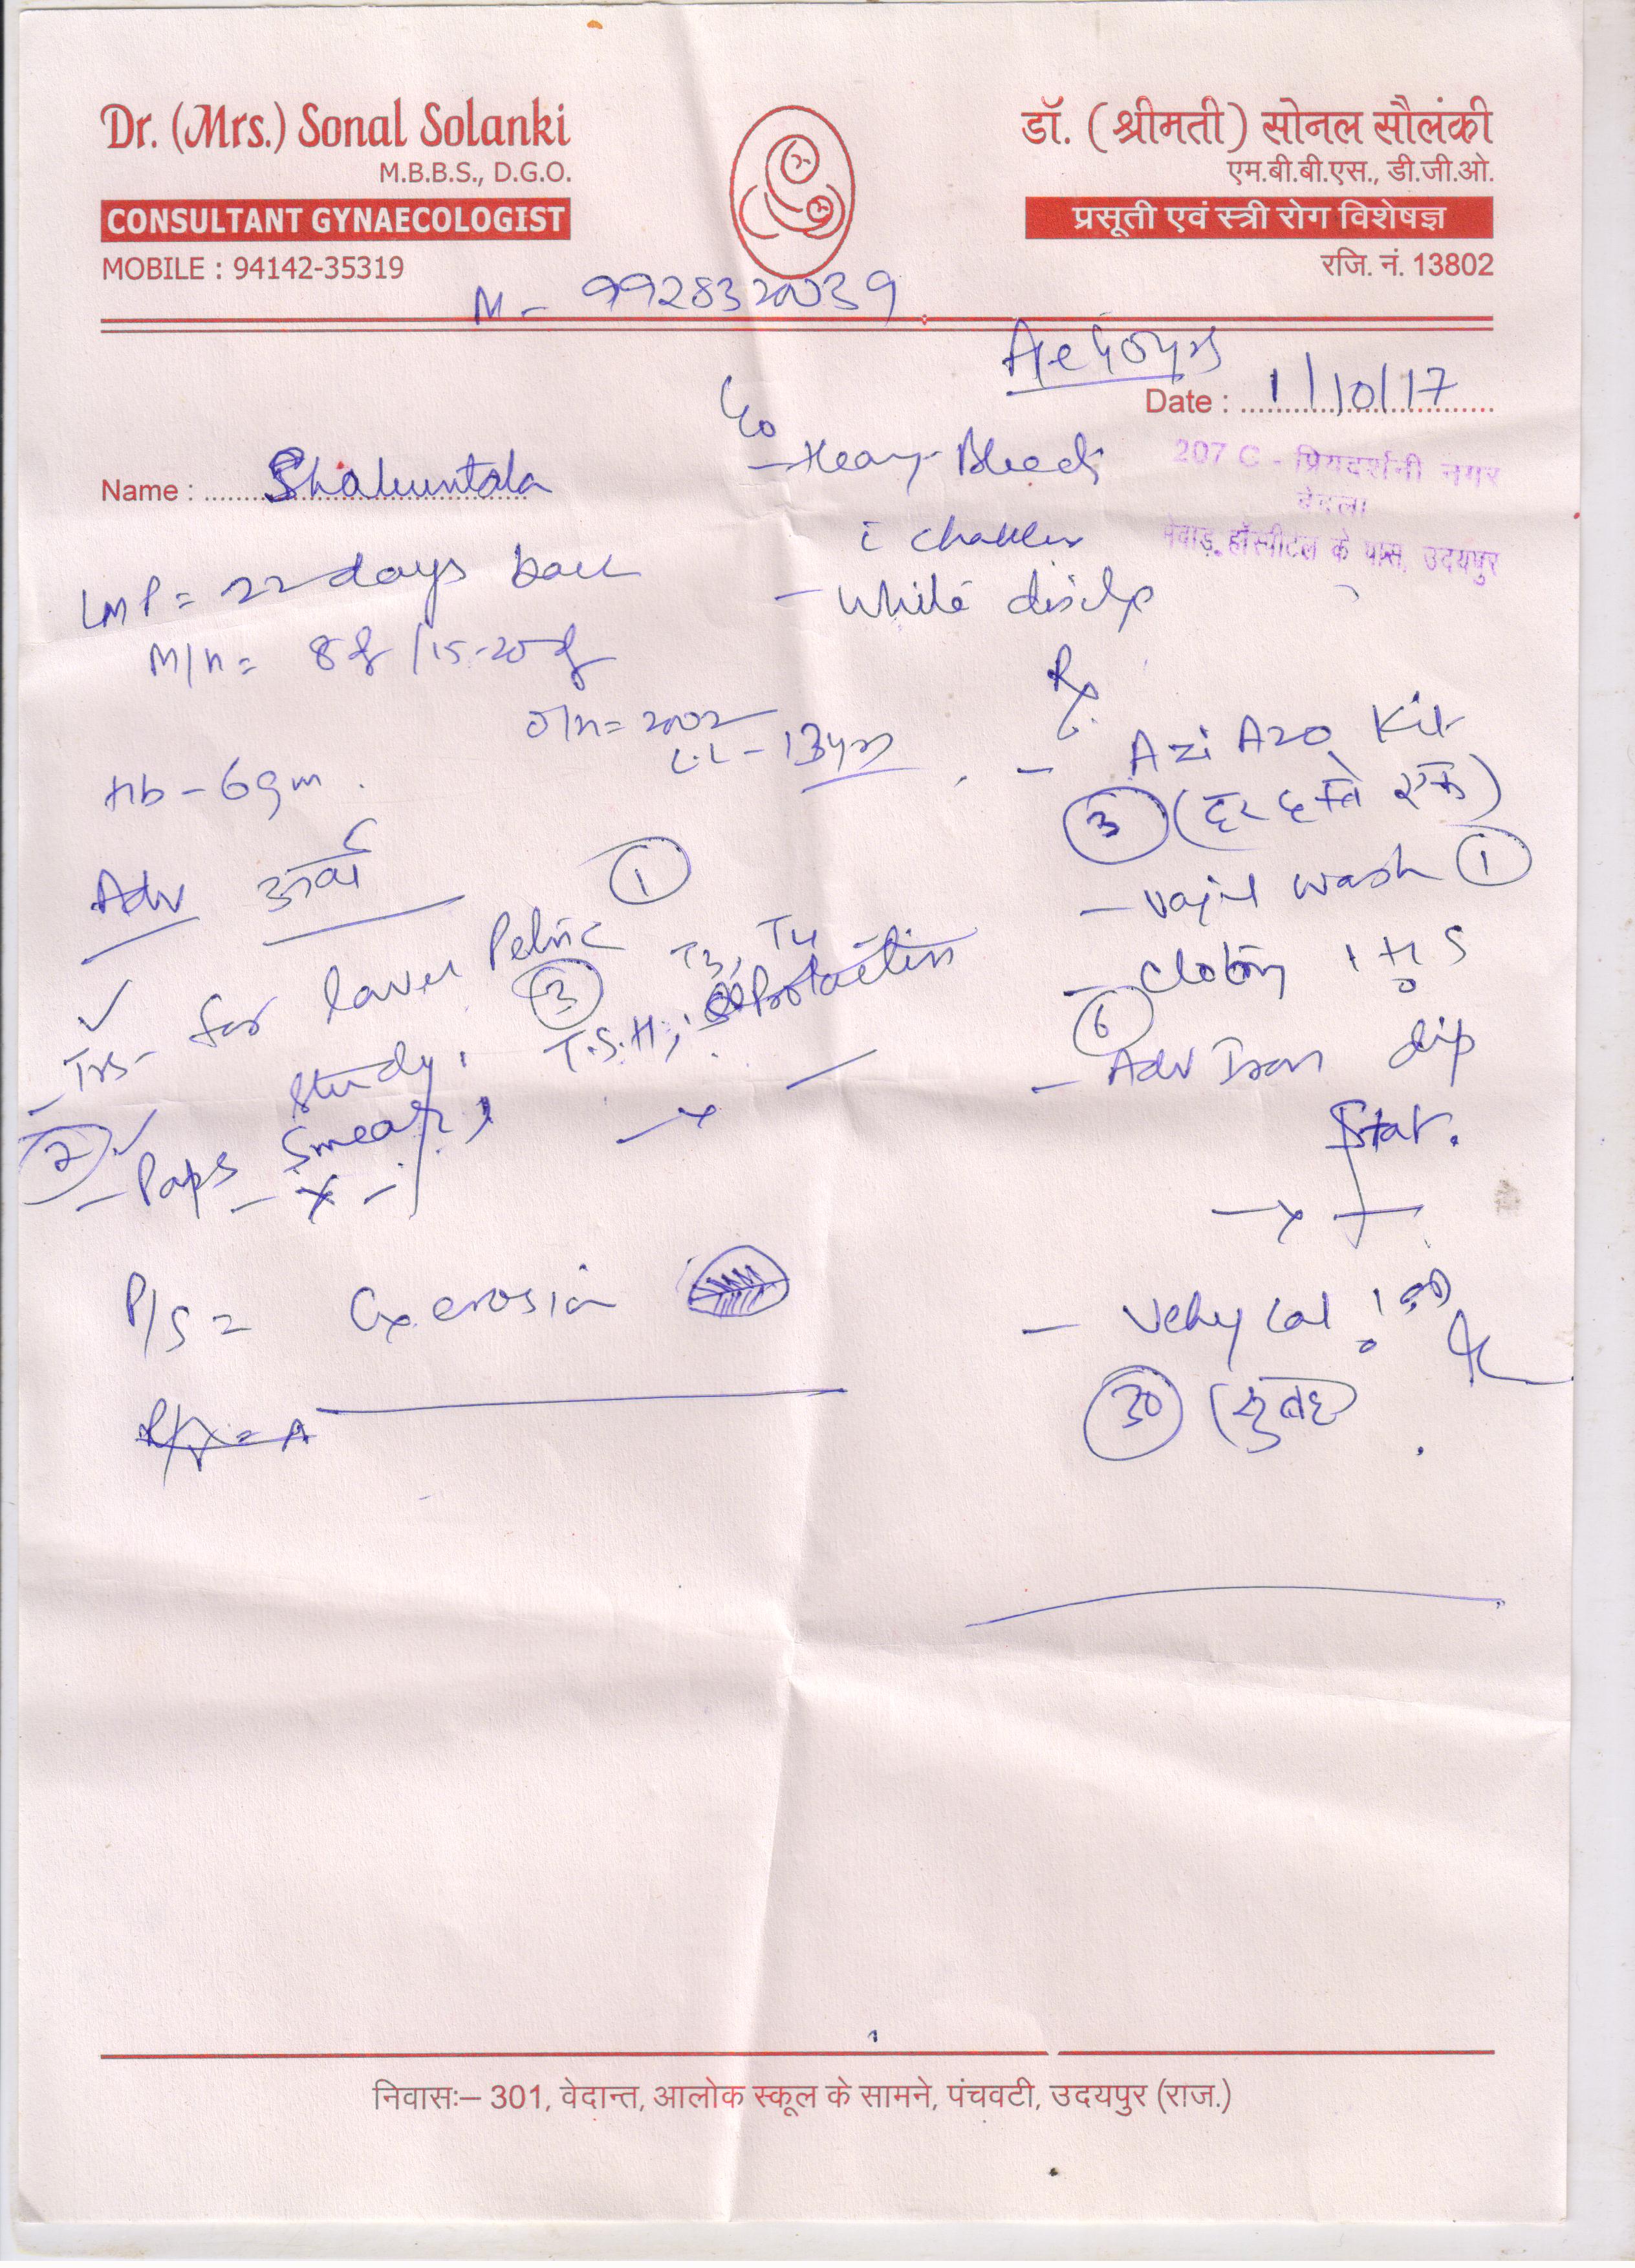 Dr. (Mrs.) Sonal Solanki
M.B.B.S., D.G.O.
CONSULTANT GYNAECOLOGIST
MOBILE : 94142-35319
डॉ. ( श्रीमती ) सोनल सौलंकी
एम.बी.बी.एस., डी.जी.ओ.
प्रसूती एवं स्त्री रोग विशेषज्ञ
रजि. नं. 13802
M - 9928320039
Age 40yrs
Date : 1/10/17
207 C - प्रियदर्शनी नगर
बेदला
मेवाड़ हॉस्पीटल के पास, उदयपुर
Name : Shakuntala
C/o
- Heavy Bleed
White
LMP = 22 days back
M/H = 8d / 15-20d
O/H = 2002
L.C - 13yrs
Hb - 6gm.
Adv
1
- TVS - for lower Pelvic
study,
3
T3, T4
T.S.H, Prolactin
2
- Paps Smear,
- x -
P/S = Cx erosion
Rx
- Azi Azo Kit
3 (हर हफ्ते एक)
- wash 1
- 1 HS
6
- Adv Iron
Stat.
- x -
- cal 1 OD
30 (सुबह
निवासः– 301, वेदान्त, आलोक स्कूल के सामने, पंचवटी, उदयपुर (राज.)